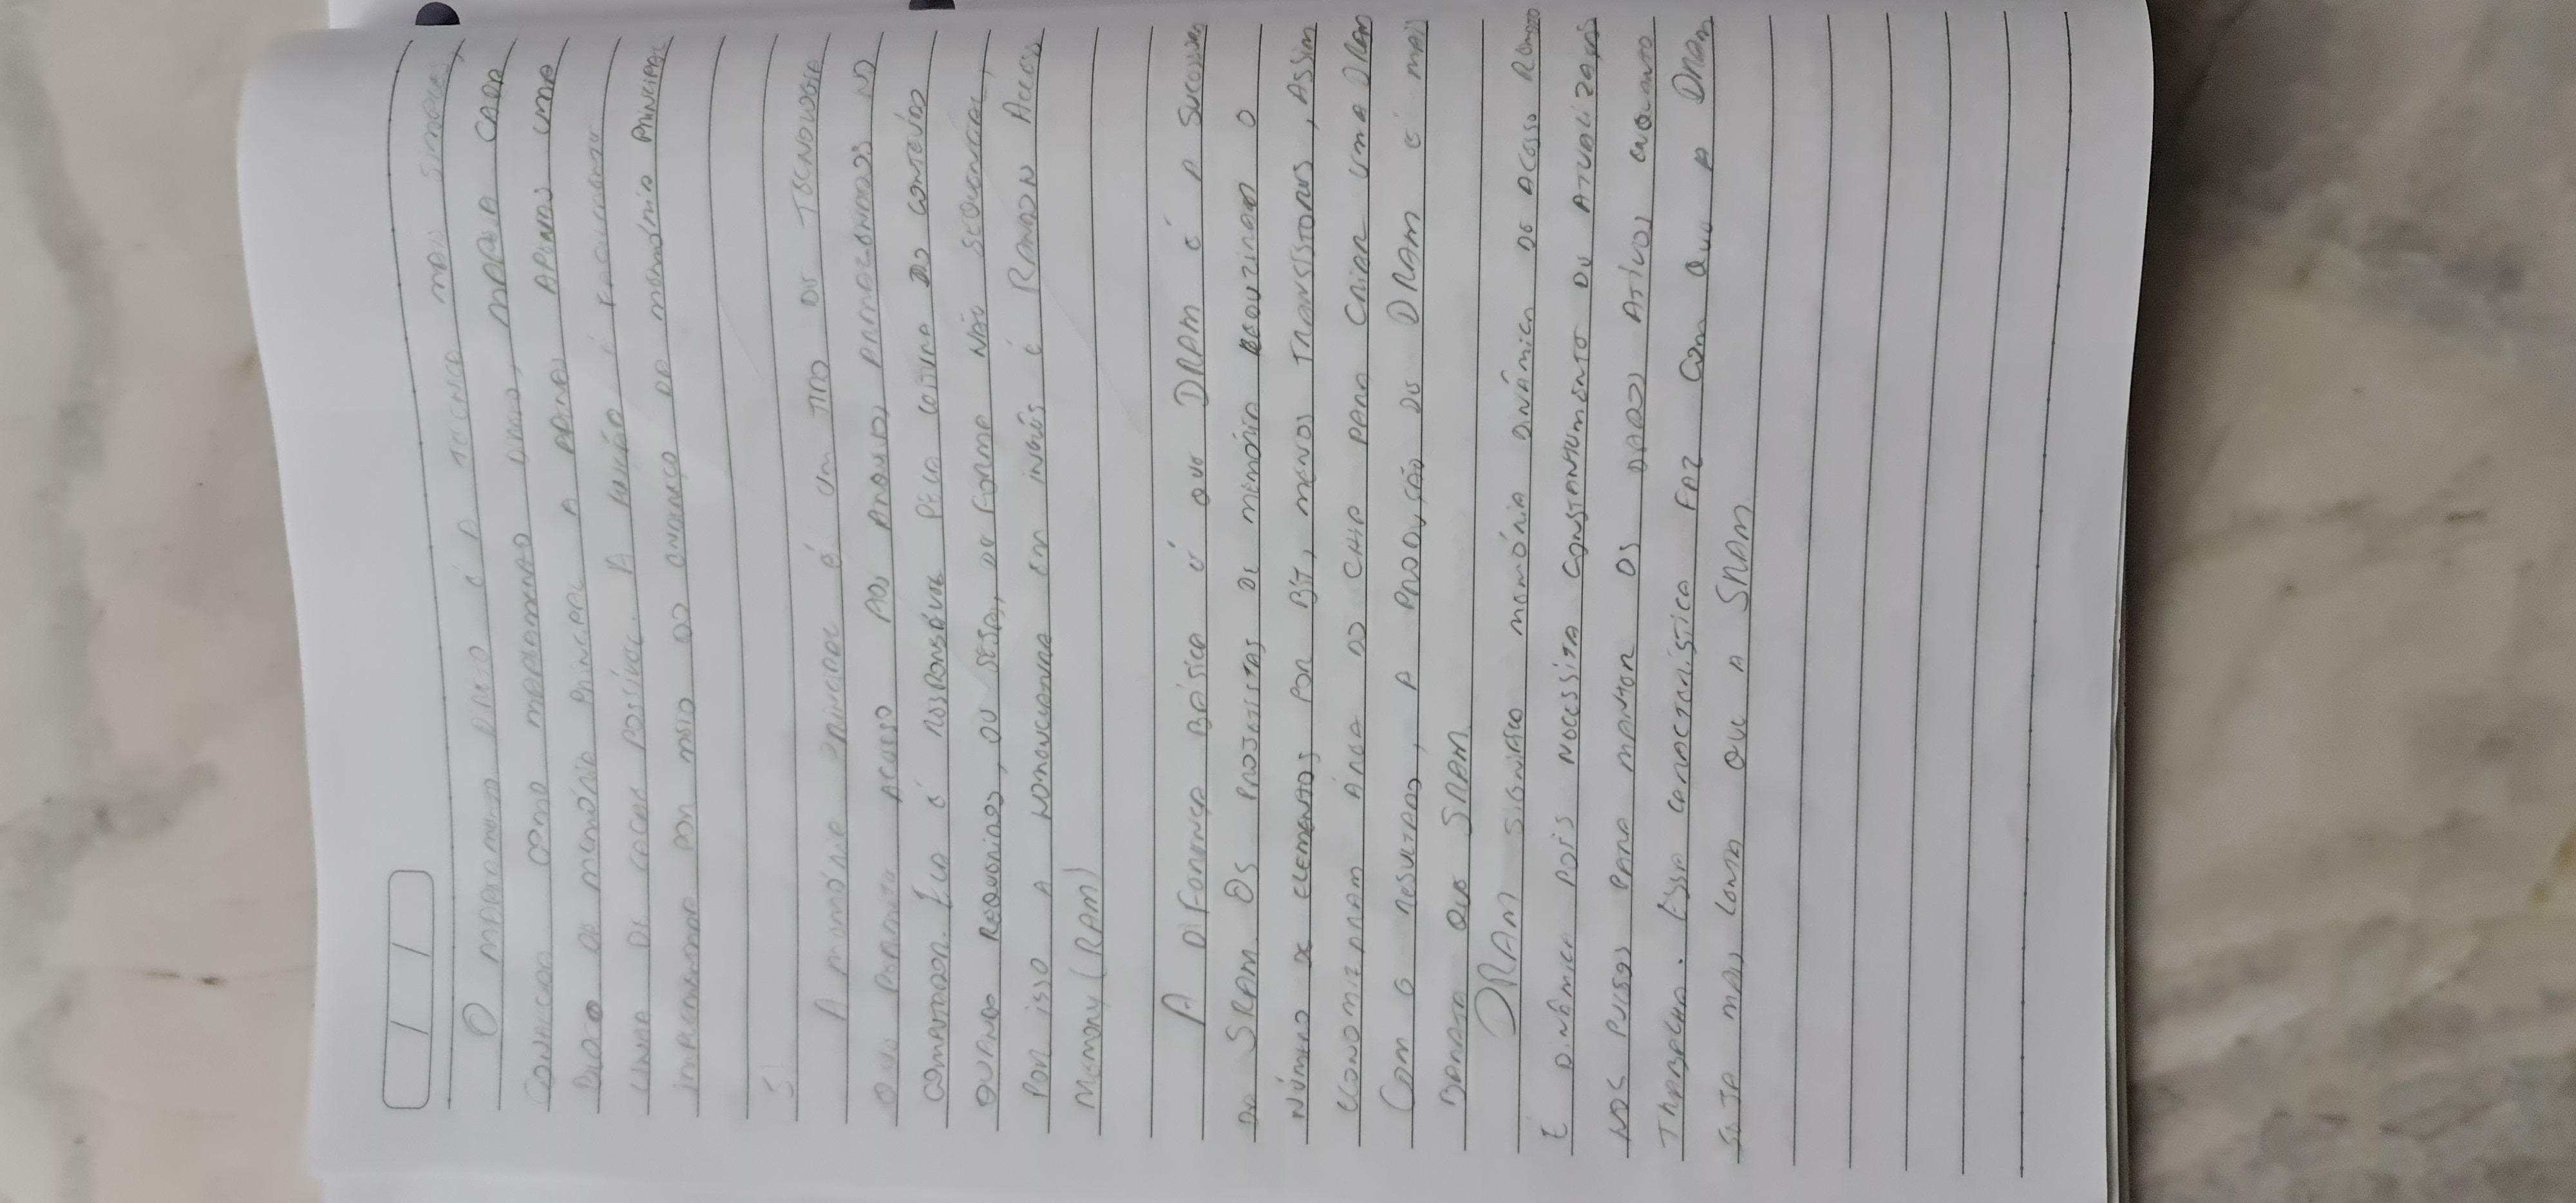 O MAPEAMENTO DIRETO É A TÉCNICA MAIS SIMPLES,
CONHECIDA COMO MAPEAMENTO DIRETO, MAPEIA CADA
BLOCO DE MEMÓRIA PRINCIPAL A APENAS APENAS UMA
LINHA DE CACHE POSSÍVEL. A FUNÇÃO É FACILMENTE
IMPLEMENTADA POR MEIO DO ENDEREÇO DA MEMÓRIA PRINCIPAL
5
A MEMÓRIA PRINCIPAL É UM TIPO DE TECNOLOGIA
QUE PERMITE ACESSO AOS ARQUIVOS ARMAZENADOS NO
COMPUTADOR. ELA É RESPONSÁVEL PELA LEITURA DO CONTEÚDO
QUANDO REQUERIDOS, OU SEJA, DE FORMA NÃO SEQUENCIAL,
POR ISSO A NOMENCLATURA EM INGLÊS É RANDON ACCESS
MEMORY (RAM)
A DIFERENÇA BÁSICA É QUE DRAM É A SUCESSORA
DA SRAM. OS PROJETISTAS DE MEMÓRIA REDUZIRAM O
NÚMERO DE ELEMENTOS POR BIT, MENOS TRANSISTORES, ASSIM
ECONOMIZARAM ÁREA DO CHIP PARA CRIAR UMA DRAM
COM O RESULTADO, A PRODUÇÃO DE DRAM É MAIS
BARATA QUE SRAM.
DRAM SIGNIFICA MEMÓRIA DINÂMICA DE ACESSO
É DINÂMICA POIS NECESSITA CONSTANTEMENTE DE ATUALIZAÇÃO
NOS PULSOS PARA MANTER OS DADOS ATIVOS ENQUANTO
TRABALHA. ESSA CARACTERÍSTICA FAZ COM QUE A DRAM
SEJA MAIS LENTA QUE A SRAM